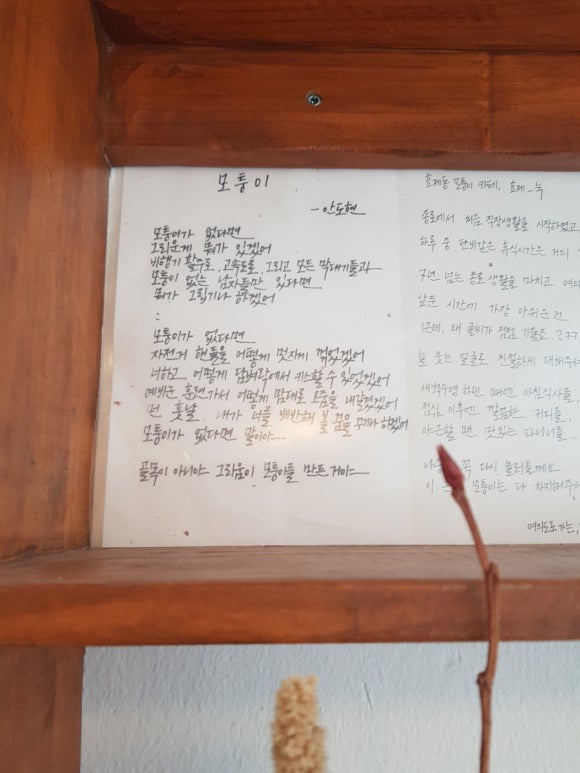 모퉁이
- 안도현
모퉁이가 없다면
그리운게 뭐가 있겠어
비행기 활주로, 고속도로, 그리고 모든 막대기들과
모퉁이 없는 남자들만 있다면
뭐가 그립기나 하겠어
:
모퉁이가 없다면
자전거 핸들을 어떻게 멋지게 꺾었겠어
너하고 어떻게 담벼락에서 키스할 수 있었겠어
예비군 훈련가서 어떻게 맘대로 오줌을 내갈겼겠어
먼 훗날, 내가 너를 배반해 볼 꿈을 꾸기나 하겠어
모퉁이가 없다면 말이야
골목이 아니야 그리움이 모퉁이를 만든 거야
효제동 모퉁이 카페, 효제_녹
종로에서 처음 직장생활을 시작하였고
하루 중 단비같은 휴식시간은 거의
7년 넘는 종로 생활을 마치고 여의
앞둔 시간에 가장 아쉬운건
(근데, 왜 글씨가 점점 기울죠..???
늘 웃는 얼굴로 친절하게 대해주셔
새벽수영 하던 때엔 아침식사를,
점심 이후엔 깔끔한 커피를,
야근할 땐 맛있는 파니니를..
꼭 다시 놀러올게요
이 모퉁이는 다 차지해주
여의도로 가는,